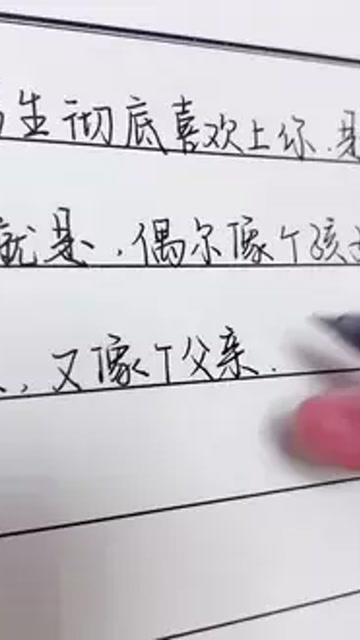 生彻底喜欢上你.是
就是、,偶尔像个孩
,又像个父亲.